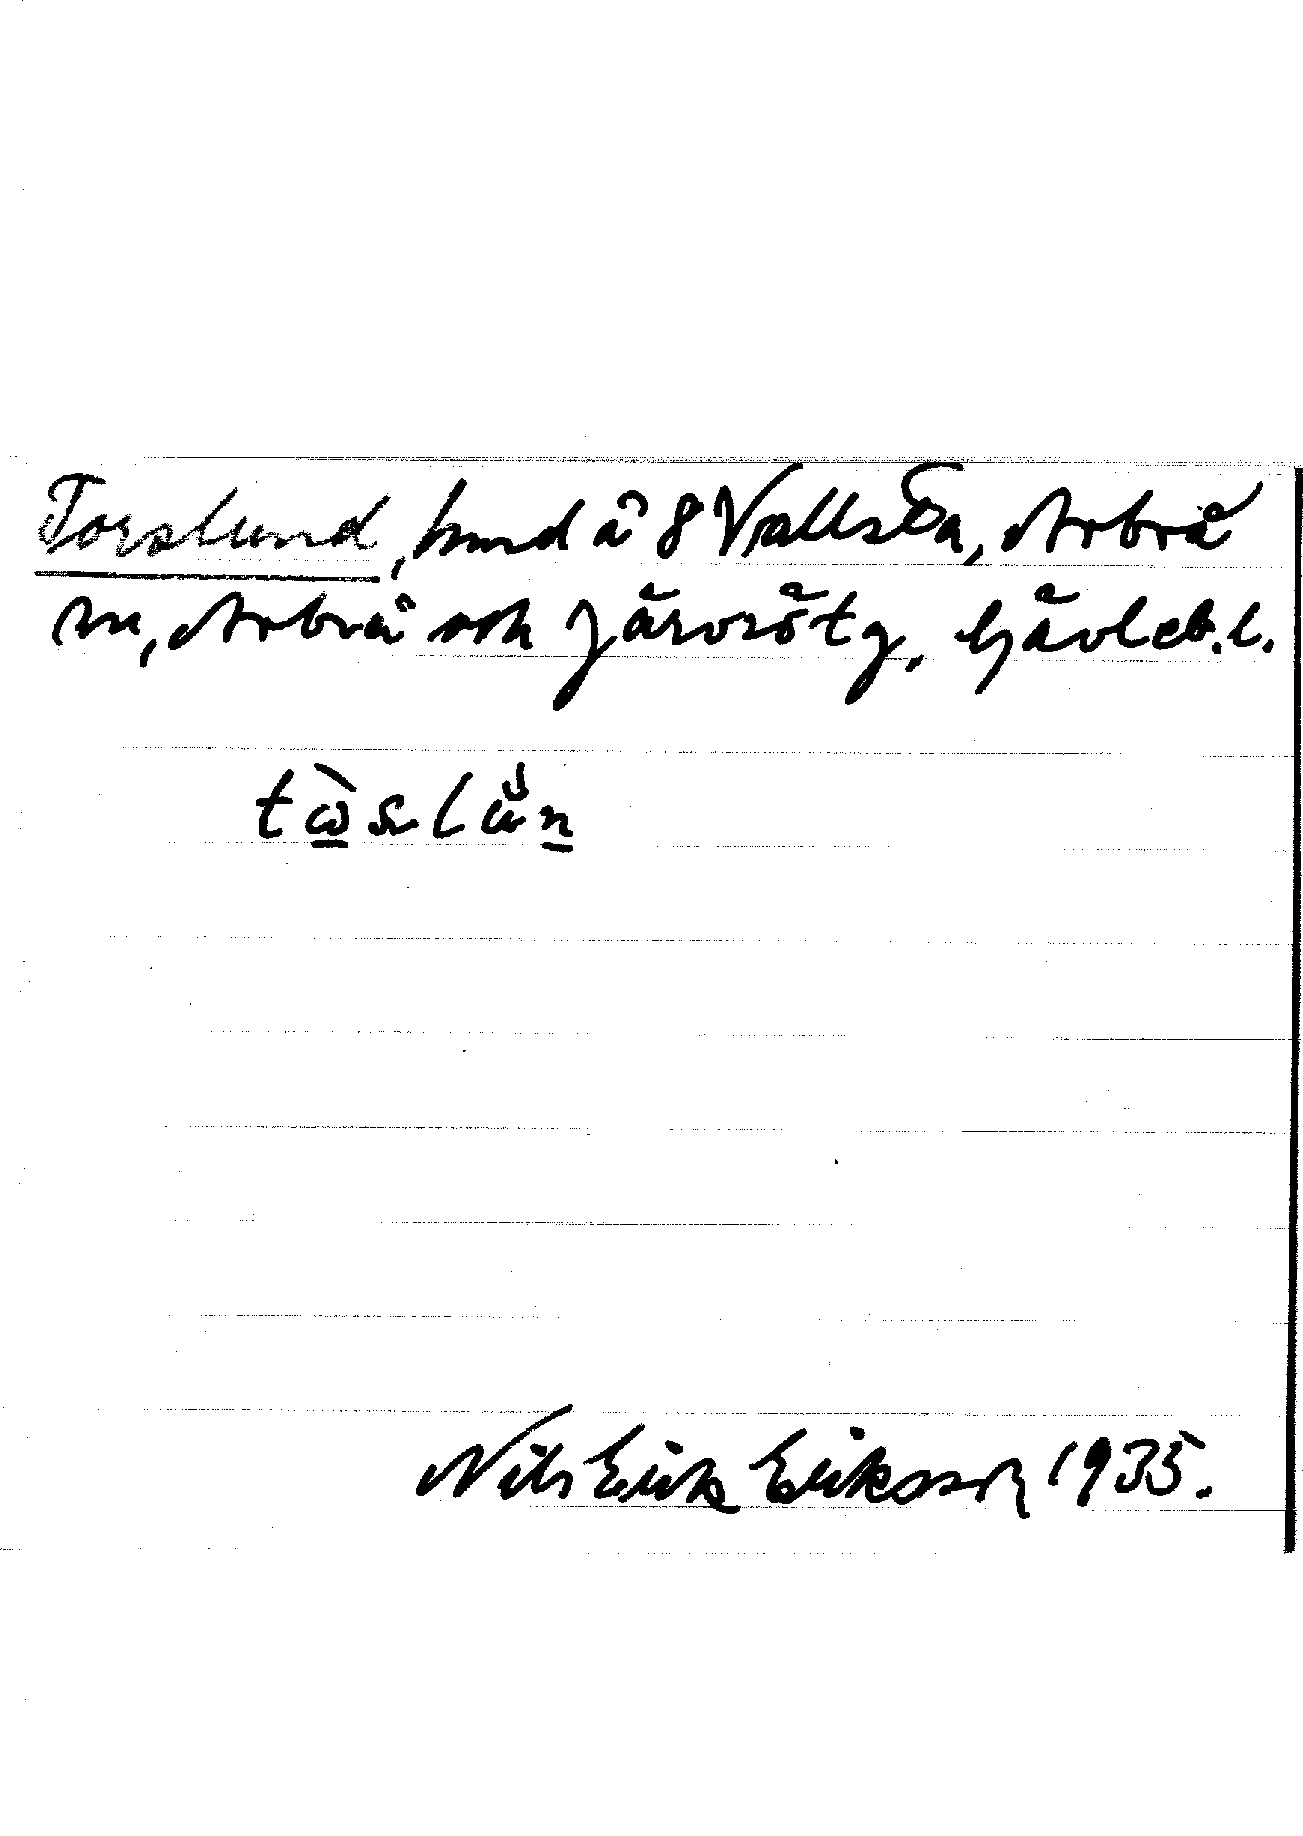 Torslund, hmd å 8 Vallsta, Arbrå
sn, Arbrå och Järvsö tg, Gävleb. l.
tὼ̲slŭn̲
Nils Erik Eriksson 1935.